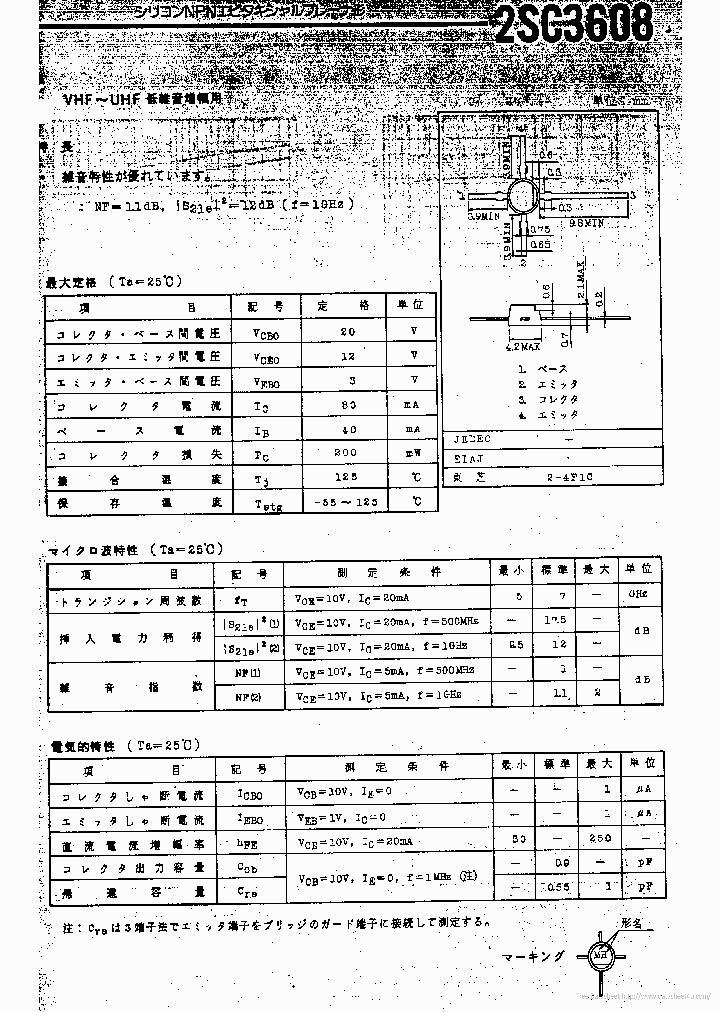 シリコンNPNエピタキシャルプレーナ形
2SC3608
VHF～UHF 低雑音増幅用
単位:mm
特長
・雑音特性が優れています。
: NF=1.1dB, |S21e|²=12dB (f=1GHz)
3.9MIN
0.6
0.3
1
3
3.9MIN
0.3
9.8MIN
3.9MIN
0.75
0.65
2
0.6
2.1MAX
0.2
4.2MAX
0.7
1. ベース
2. エミッタ
3. コレクタ
4. エミッタ
JEDEC －
EIAJ
東芝 2-4F1C
最大定格 (Ta=25℃)
項目 記号 定格 単位
コレクタ・ベース間電圧 VCBO 20 V
コレクタ・エミッタ間電圧 VCEO 12 V
エミッタ・ベース間電圧 VEBO 3 V
コレクタ電流 IC 80 mA
ベース電流 IB 40 mA
コレクタ損失 PC 200 mW
接合温度 Tj 125 ℃
保存温度 Tstg -55～125 ℃
マイクロ波特性 (Ta=25℃)
項目 記号 測定条件 最小 標準 最大 単位
トランジション周波数 fT VCE=10V, IC=20mA 5 7 － GHz
挿入電力利得 |S21e|²(1) VCE=10V, IC=20mA, f=500MHz － 17.5 － dB
|S21e|²(2) VCE=10V, IC=20mA, f=1GHz 8.5 12 －
雑音指数 NF(1) VCE=10V, IC=5mA, f=500MHz － 1 － dB
NF(2) VCE=10V, IC=5mA, f=1GHz － 1.1 2
電気的特性 (Ta=25℃)
項目 記号 測定条件 最小 標準 最大 単位
コレクタしゃ断電流 ICBO VCB=10V, IE=0 － － 1 μA
エミッタしゃ断電流 IEBO VEB=1V, IC=0 － － 1 μA
直流電流増幅率 hFE VCE=10V, IC=20mA 30 － 250 －
コレクタ出力容量 Cob VCB=10V, IE=0, f=1MHz (注) － 0.9 － pF
帰還容量 Cre － 0.55 1 pF
注: Creは3端子法でエミッタ端子をブリッジのガード端子に接続して測定する。
マーキング
形名